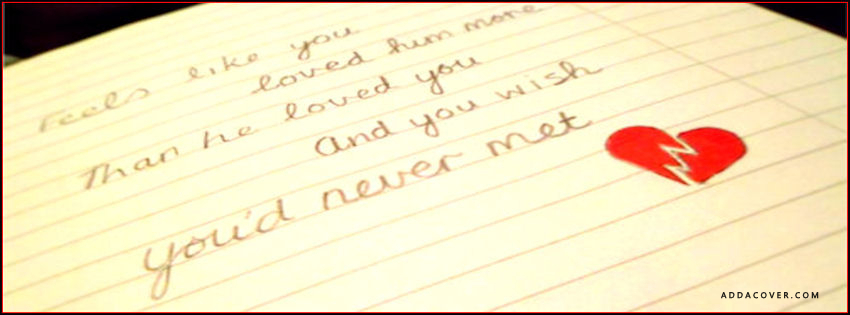 Feels like you
loved him more
Than he loved you
and you wish
you'd never met
ADDACOVER.COM